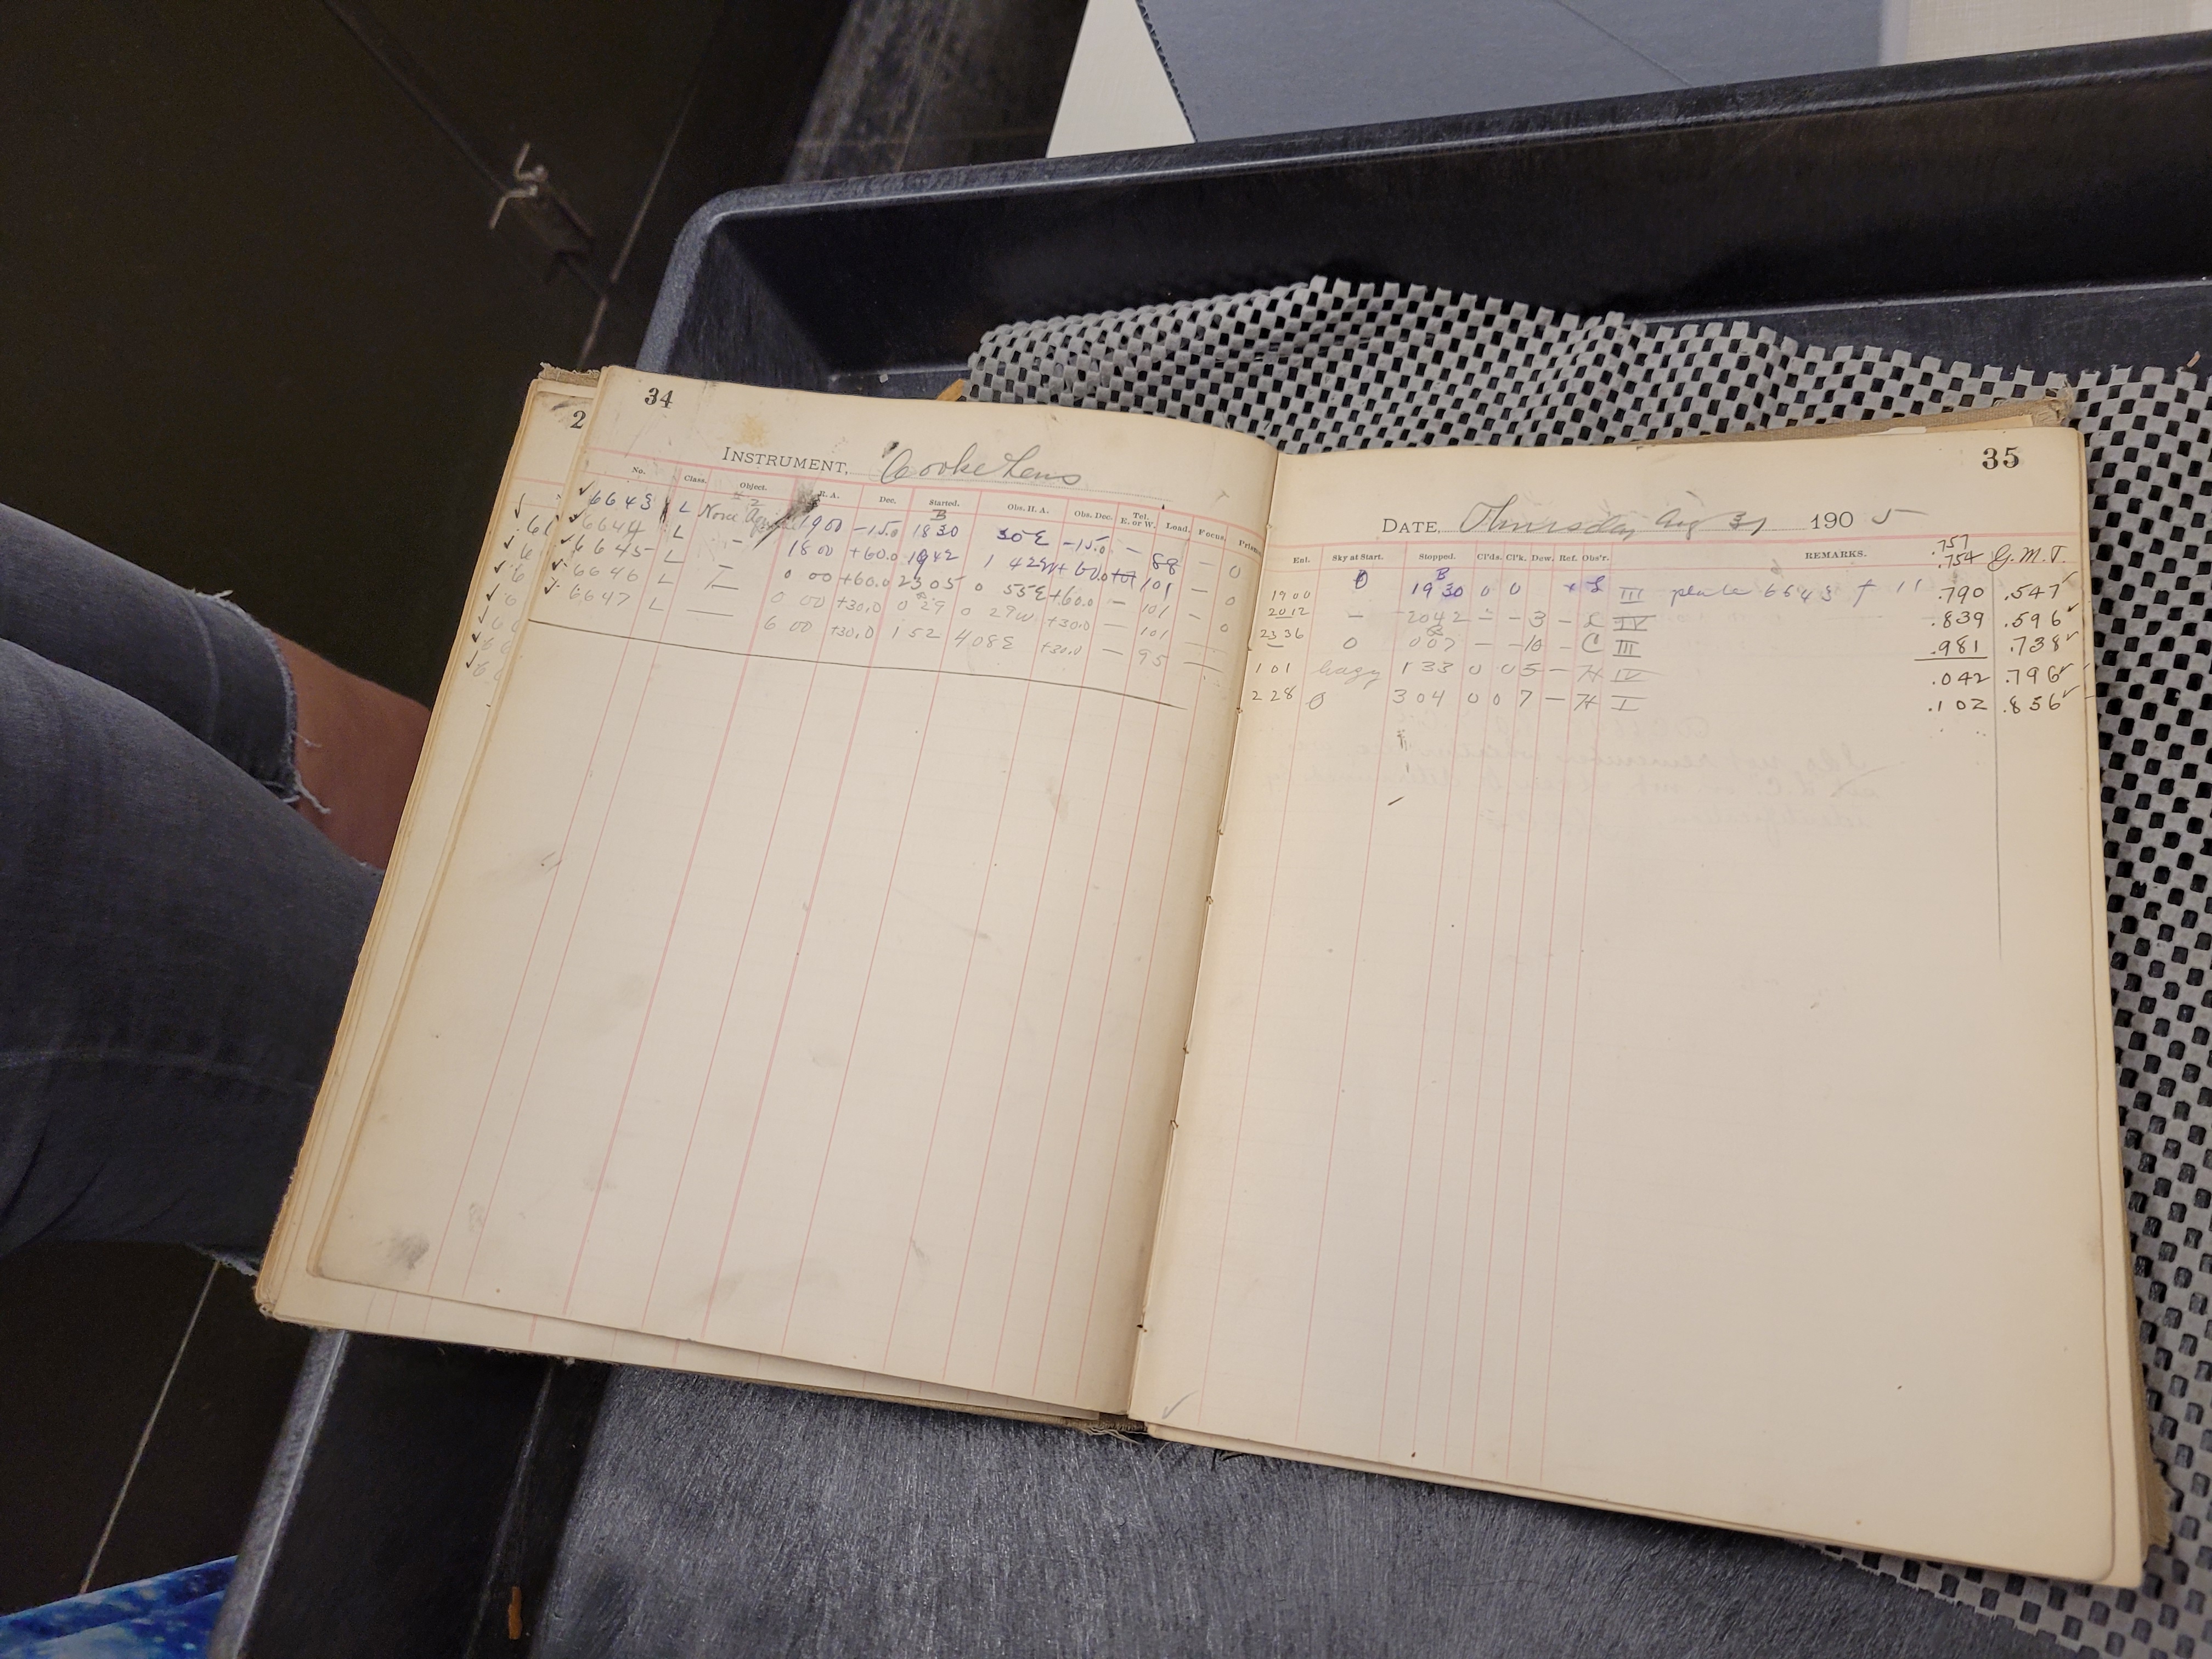 34
INSTRUMENT, Cooke Lens
No. Class. Object. R. A. Dec. Started. Obs. H. A. Obs. Dec. Tel. E. or W. Load. Focus.
B
✓ 6643 L Nova 1900 -15.0 1830 30 E -15.0 - 88 - 0
✓ 6644 L - 1800 +60.0 1942 1 42 W +60.0 101 - 0
✓ 6645 L 0 00 +60.0 2305 0 55 E +60.0 - 101 - 0
✓ 6646 L 0 00 +30.0 0 29 0 29 W +30.0 - 101
✓ 6647 L 6 00 +30.0 1 52 4 08 E +30.0 - 95
2
35
DATE, Thursday Aug 31 1905
Exl. Sky at Start. Stopped. Cl'ds. Cl'k. Dew. Ref. Obs'r. REMARKS. .757
.754 G. M. T.
B
1900 0 1930 0 0 L III plate 6643 f 11 .790 .547 ✓
2012 - 2042 - - 3 - L IV .839 .596 ✓
2336 0 007 - - 10 - C III .981 .738 ✓
1 01 hazy 1 33 0 0 5 - H IV .042 .796 ✓
2 28 0 3 04 0 0 7 - H I .102 .856 ✓